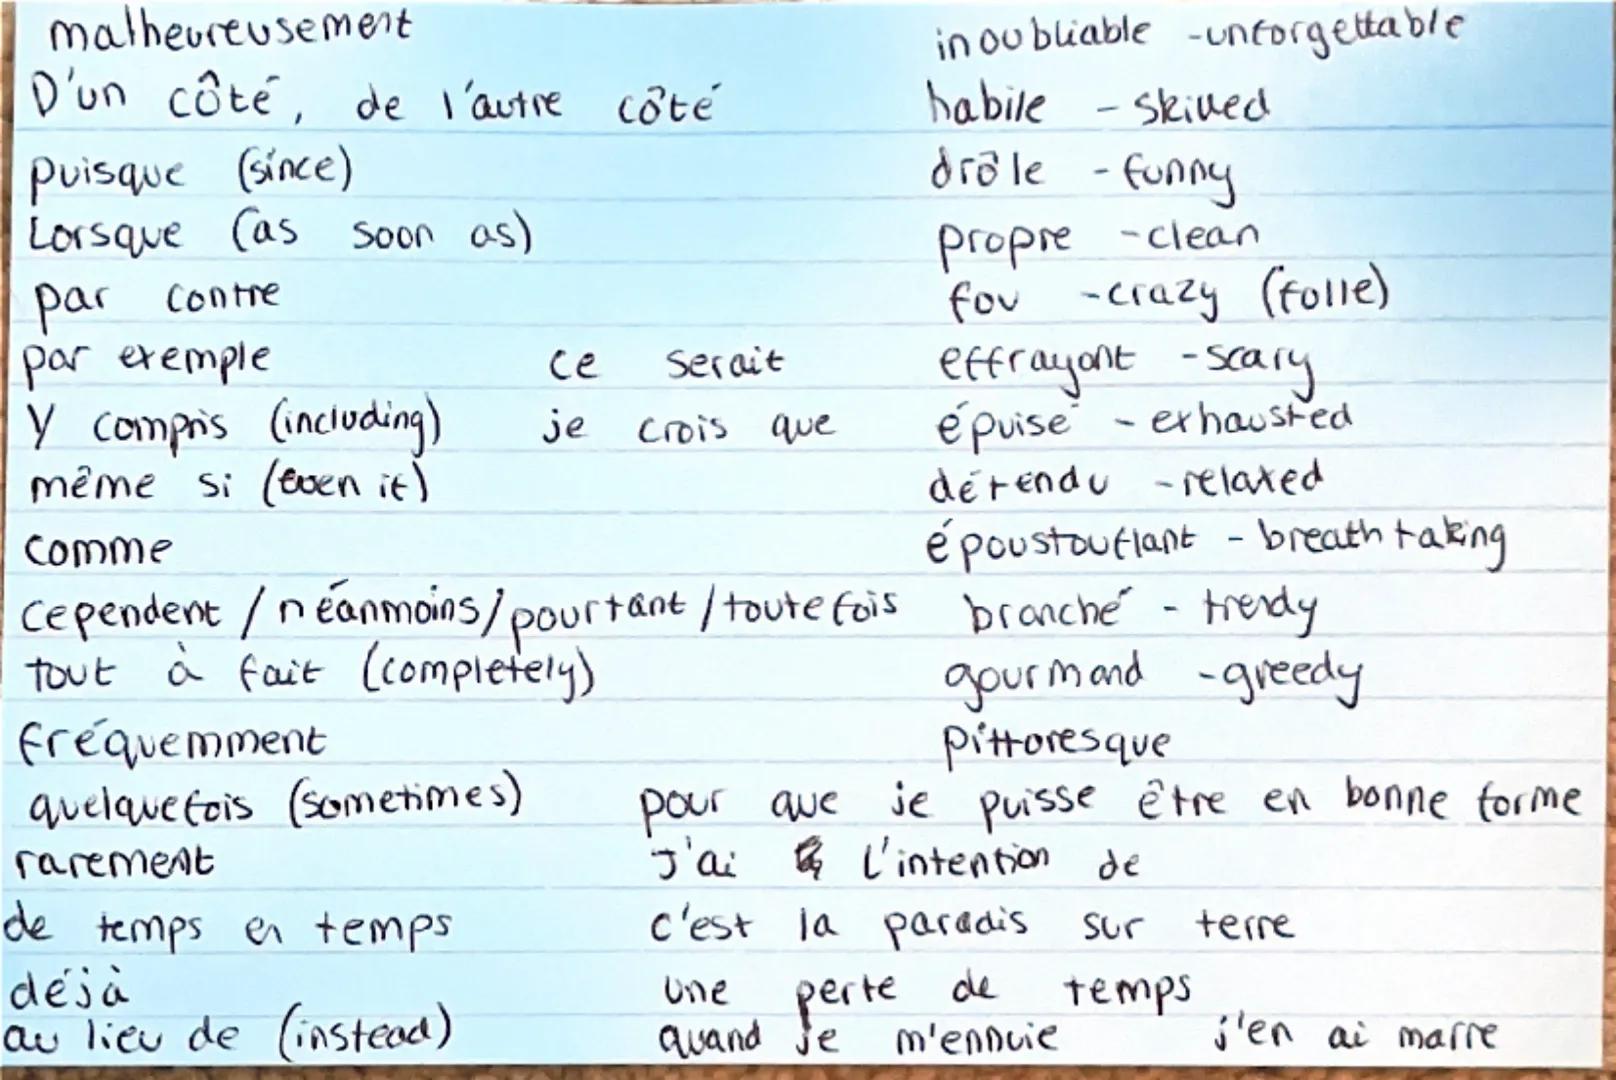 malheureusement inoubliable -unforgettable
D'un côté, de l'autre côté habile - skilled
puisque (since) drôle - funny
Lorsque (as soon as) propre -clean
par contre fou -crazy (folle)
par exemple ce serait effrayant -scary
y compris (including) je crois que épuisé - exhausted
même si (even if) détendu -relaxed
comme époustouflant - breath taking
cependent / néanmoins/pourtant / toutefois branché - trendy
tout à fait (completely) gourmand -greedy
fréquemment pittoresque
quelquefois (sometimes) pour que je puisse être en bonne forme
rarement J'ai l'intention de
de temps en temps c'est la paradis sur terre
déjà une perte de temps
au lieu de (instead) quand je m'ennuie j'en ai marre